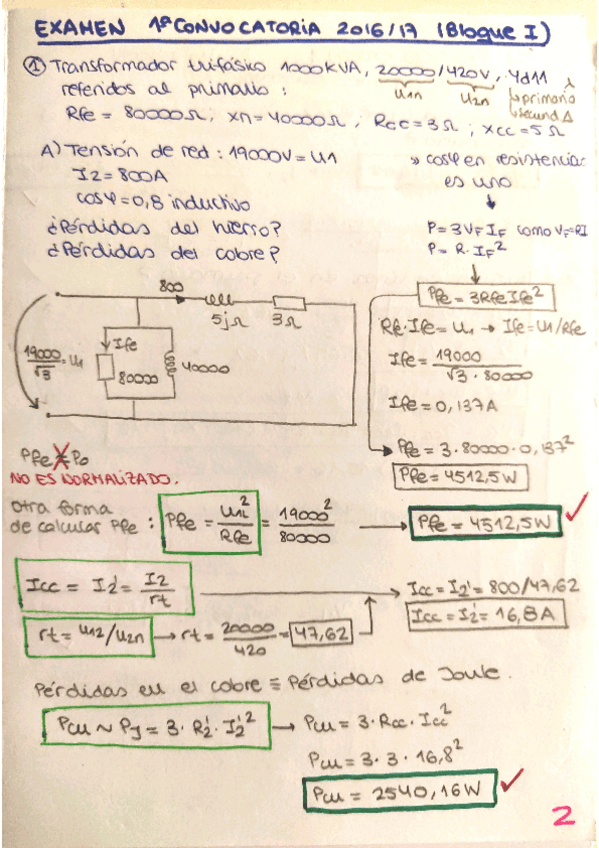 EXAMEN 1ª CONVOCATORIA 2016/17 (Bloque I)
① Transformador trifásico 1000KVA, 20000/420V, Yd11 λ
U1n U2n ↳primario
referidos al primario: ↳secund Δ
Rfe = 80000Ω; Xn=40000Ω; Rcc=3Ω; Xcc=5Ω
A) Tensión de red: 19000V = U1
I2 = 800A
cosφ=0,8 inductivo
¿Pérdidas del hierro?
¿Pérdidas del cobre?
» cosφ en resistencias
es uno
P=3VF IF como VF=RI
P= R·IF²
Pfe = 3RfeIfe²
Rfe·Ife = U1 → Ife=U1/Rfe
Ife = 19000/√3·80000
Ife = 0,137A
Pfe = 3·80000·0,137²
Pfe = 4512,5W
800
5jΩ 3Ω
19000/√3 = U1
Ife
80000
40000
Pfe = Po
NO ES NORMALIZADO.
Otra forma
de calcular Pfe: Pfe = U1L²/Rfe = 19000²/80000 → Pfe = 4512,5W ✓
Icc = I2' = I2/rt → Icc = I2' = 800/47,62
Icc = I2' = 16,8A
rt = U12/U2n → rt = 20000/420 = 47,62
Pérdidas en el cobre ≡ Pérdidas de Joule.
Pcu ~ PJ = 3·R2'·I2'² → Pcu = 3·Rcc·Icc²
Pcu = 3·3·16,8²
Pcu = 2540,16W ✓
2